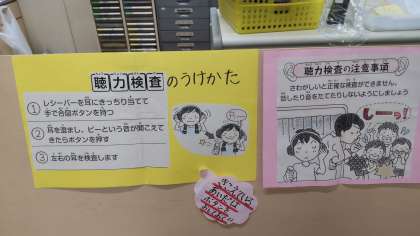 聴力検査のうけかた
① レシーバーを耳にきっちり当てて
手で合図ボタンを持つ
② 耳を澄まし、ピーという音が聞こえて
きたらボタンを押す
③ 左右の耳を検査します
聴力検査の注意事項
さわがしいと正確な検査ができません。
話したり音をたてたりしないようにしましょう
しーっ!